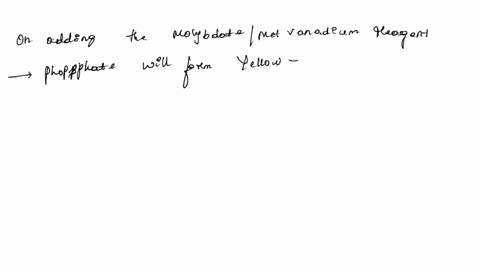 On adding the Molybdate/Met vanadium Reagent
→ phosphate will form Yellow -